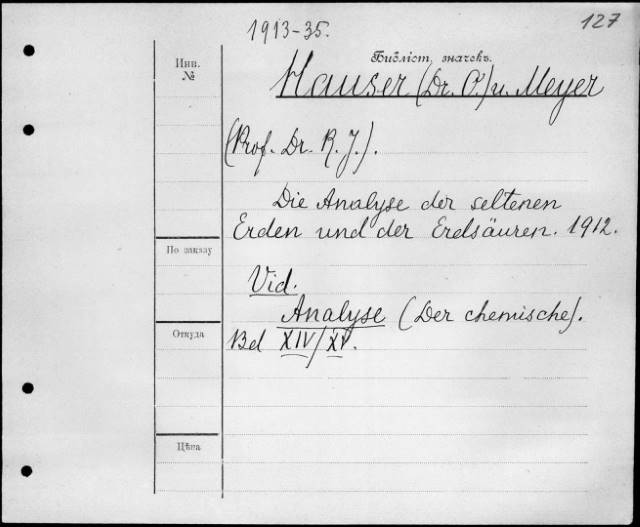 1913-35.
127
Инв.
№
Библіот. значекъ.
Hauser (Dr. O.) u. Meyer
(Prof. Dr. R. J.).
Die Analyse der seltenen
Erden und der Erdsäuren. 1912.
По заказу
Vid.
Analyse (Der chemische).
Откуда
Bd XIV/XV.
Цѣна